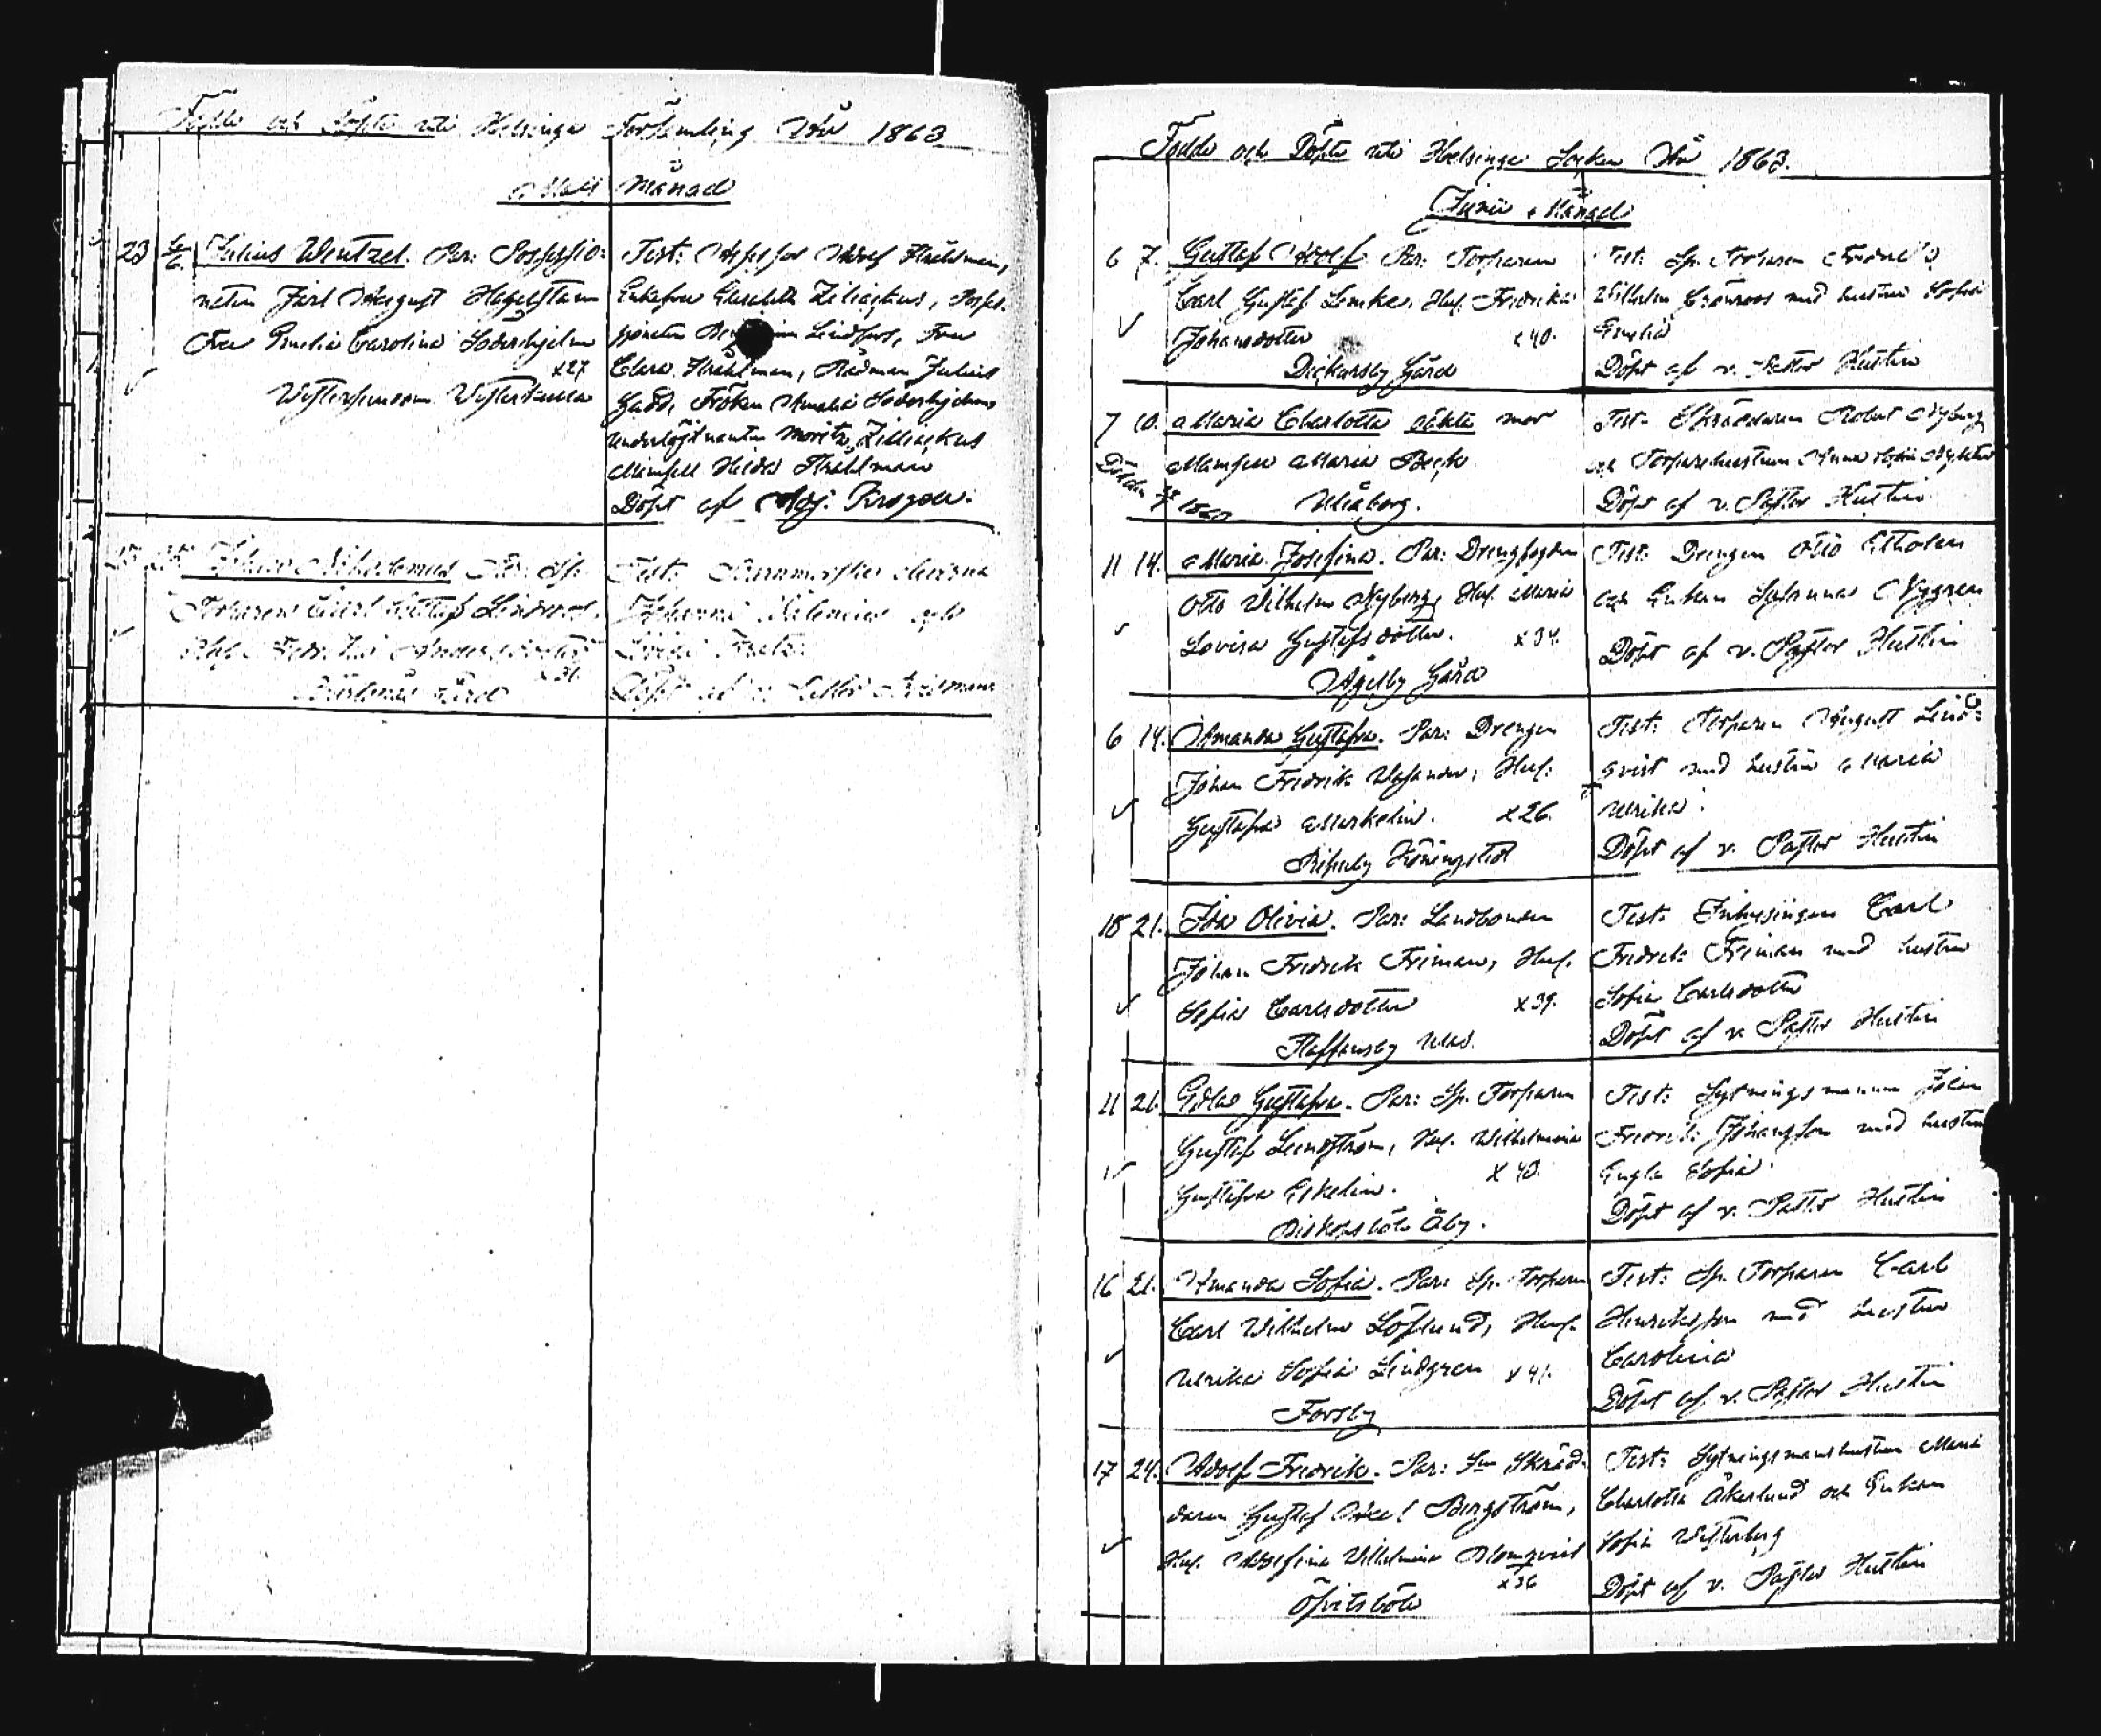 Födde och Döpte uti Helsinge Församling År 1863
Maij Månad
23 Julius Wentzel. Par: Possessio-
naten Jarl August Hagelstam
Fru Emilia Carolina Söderhjelm
x27
Westersundom. Westerkulla
Test: Assessor Adolf Stråhlman,
Enkefru Elisabeth Zilliackus,
Lindfors, Fru
Clara Stråhlman, Rådman Julius
Gadd, Fröken Amalia Söderhjelm
Underlöjtnanten Moritz Zilliackus
Mamsell Hilda Stråhlman
Döpt af Adj. Krogell.
Johan Nikodemus Par: Sp.
Torparen Carl Gustaf Lindroos,
Hu: Fredrika Andersdotter
x31.
Gård
Test: Barnmorskan
Johanna och
Döpt af v. Pastor
Födde och Döpte uti Helsinge Socken År 1863.
Junii Månad
6 7. Gustaf Adolf. Par: Torparen
Carl Gustaf Lemke, Hu: Fredrika
Johansdotter x40.
Dickursby Gård
Test: Sp. Torparen Fredrik
Wilhelm Grönroos med hustru Sofia
Emelia
Döpt af v. Pastor Hustin
7 10. Maria Charlotta oäkta mor
Mamsell Maria Beck.
Uleåborg.
Test: Skräddaren Robert Nyberg
och Torparehustrun Anna Sofia Nyster
Döpt af v. Pastor Hustin
11 14. Maria Josefina. Par: Drengfogden
Otto Wilhelm Nyberg, Hu: Maria
Lovisa Gustafsdotter. x34.
Ågelby Gård
Test: Drengen Otto Ekholm
och Enkan Nygren
Döpt af v. Pastor Hustin
6 14. Amanda Gustafva. Par: Drengen
Johan Fredrik Hu:
Gustafva Markelin. x26.
Ripuby Köningstedt
Test: Torparen August Lind-
qvist med hustru Maria
Ulrika.
Döpt af v. Pastor Hustin
18 21. Ida Olivia. Par: Landbonden
Johan Fredrik Friman, Hu:
Sofia Carlsdotter x39.
Staffansby
Test: Inhysingen Carl
Fredrik Friman med hustru
Sofia Carlsdotter
Döpt af v. Pastor Hustin
11 21. Edla Gustafva. Par: Sp. Torparen
Gustaf Lindström, Hu: Wilhelmina
Gustafva Eskelin. x40.
Biskopsböle Åby.
Test: Sytningsmannen Johan
Fredrik Johansson med hustru
Engla Sofia.
Döpt af v. Pastor Hustin
16 21. Amanda Sofia. Par: Sp. Torparen
Carl Wilhelm Löflund, Hu:
Ulrika Sofia Lindgren x41.
Forsby
Test: Sp. Torparen Carl
Henriksson med hustru
Carolina
Döpt af v. Pastor Hustin
17 24. Adolf Fredrik. Par: Skräd-
daren Gustaf Axel Bergström,
Hu: Adolfina Wilhelmina Blomqvist
x36
Öfvitsböle
Test: Sytningsmanshustrun Maria
Charlotta Åkerlund och Enkan
Sofia Westerberg
Döpt af v. Pastor Hustin